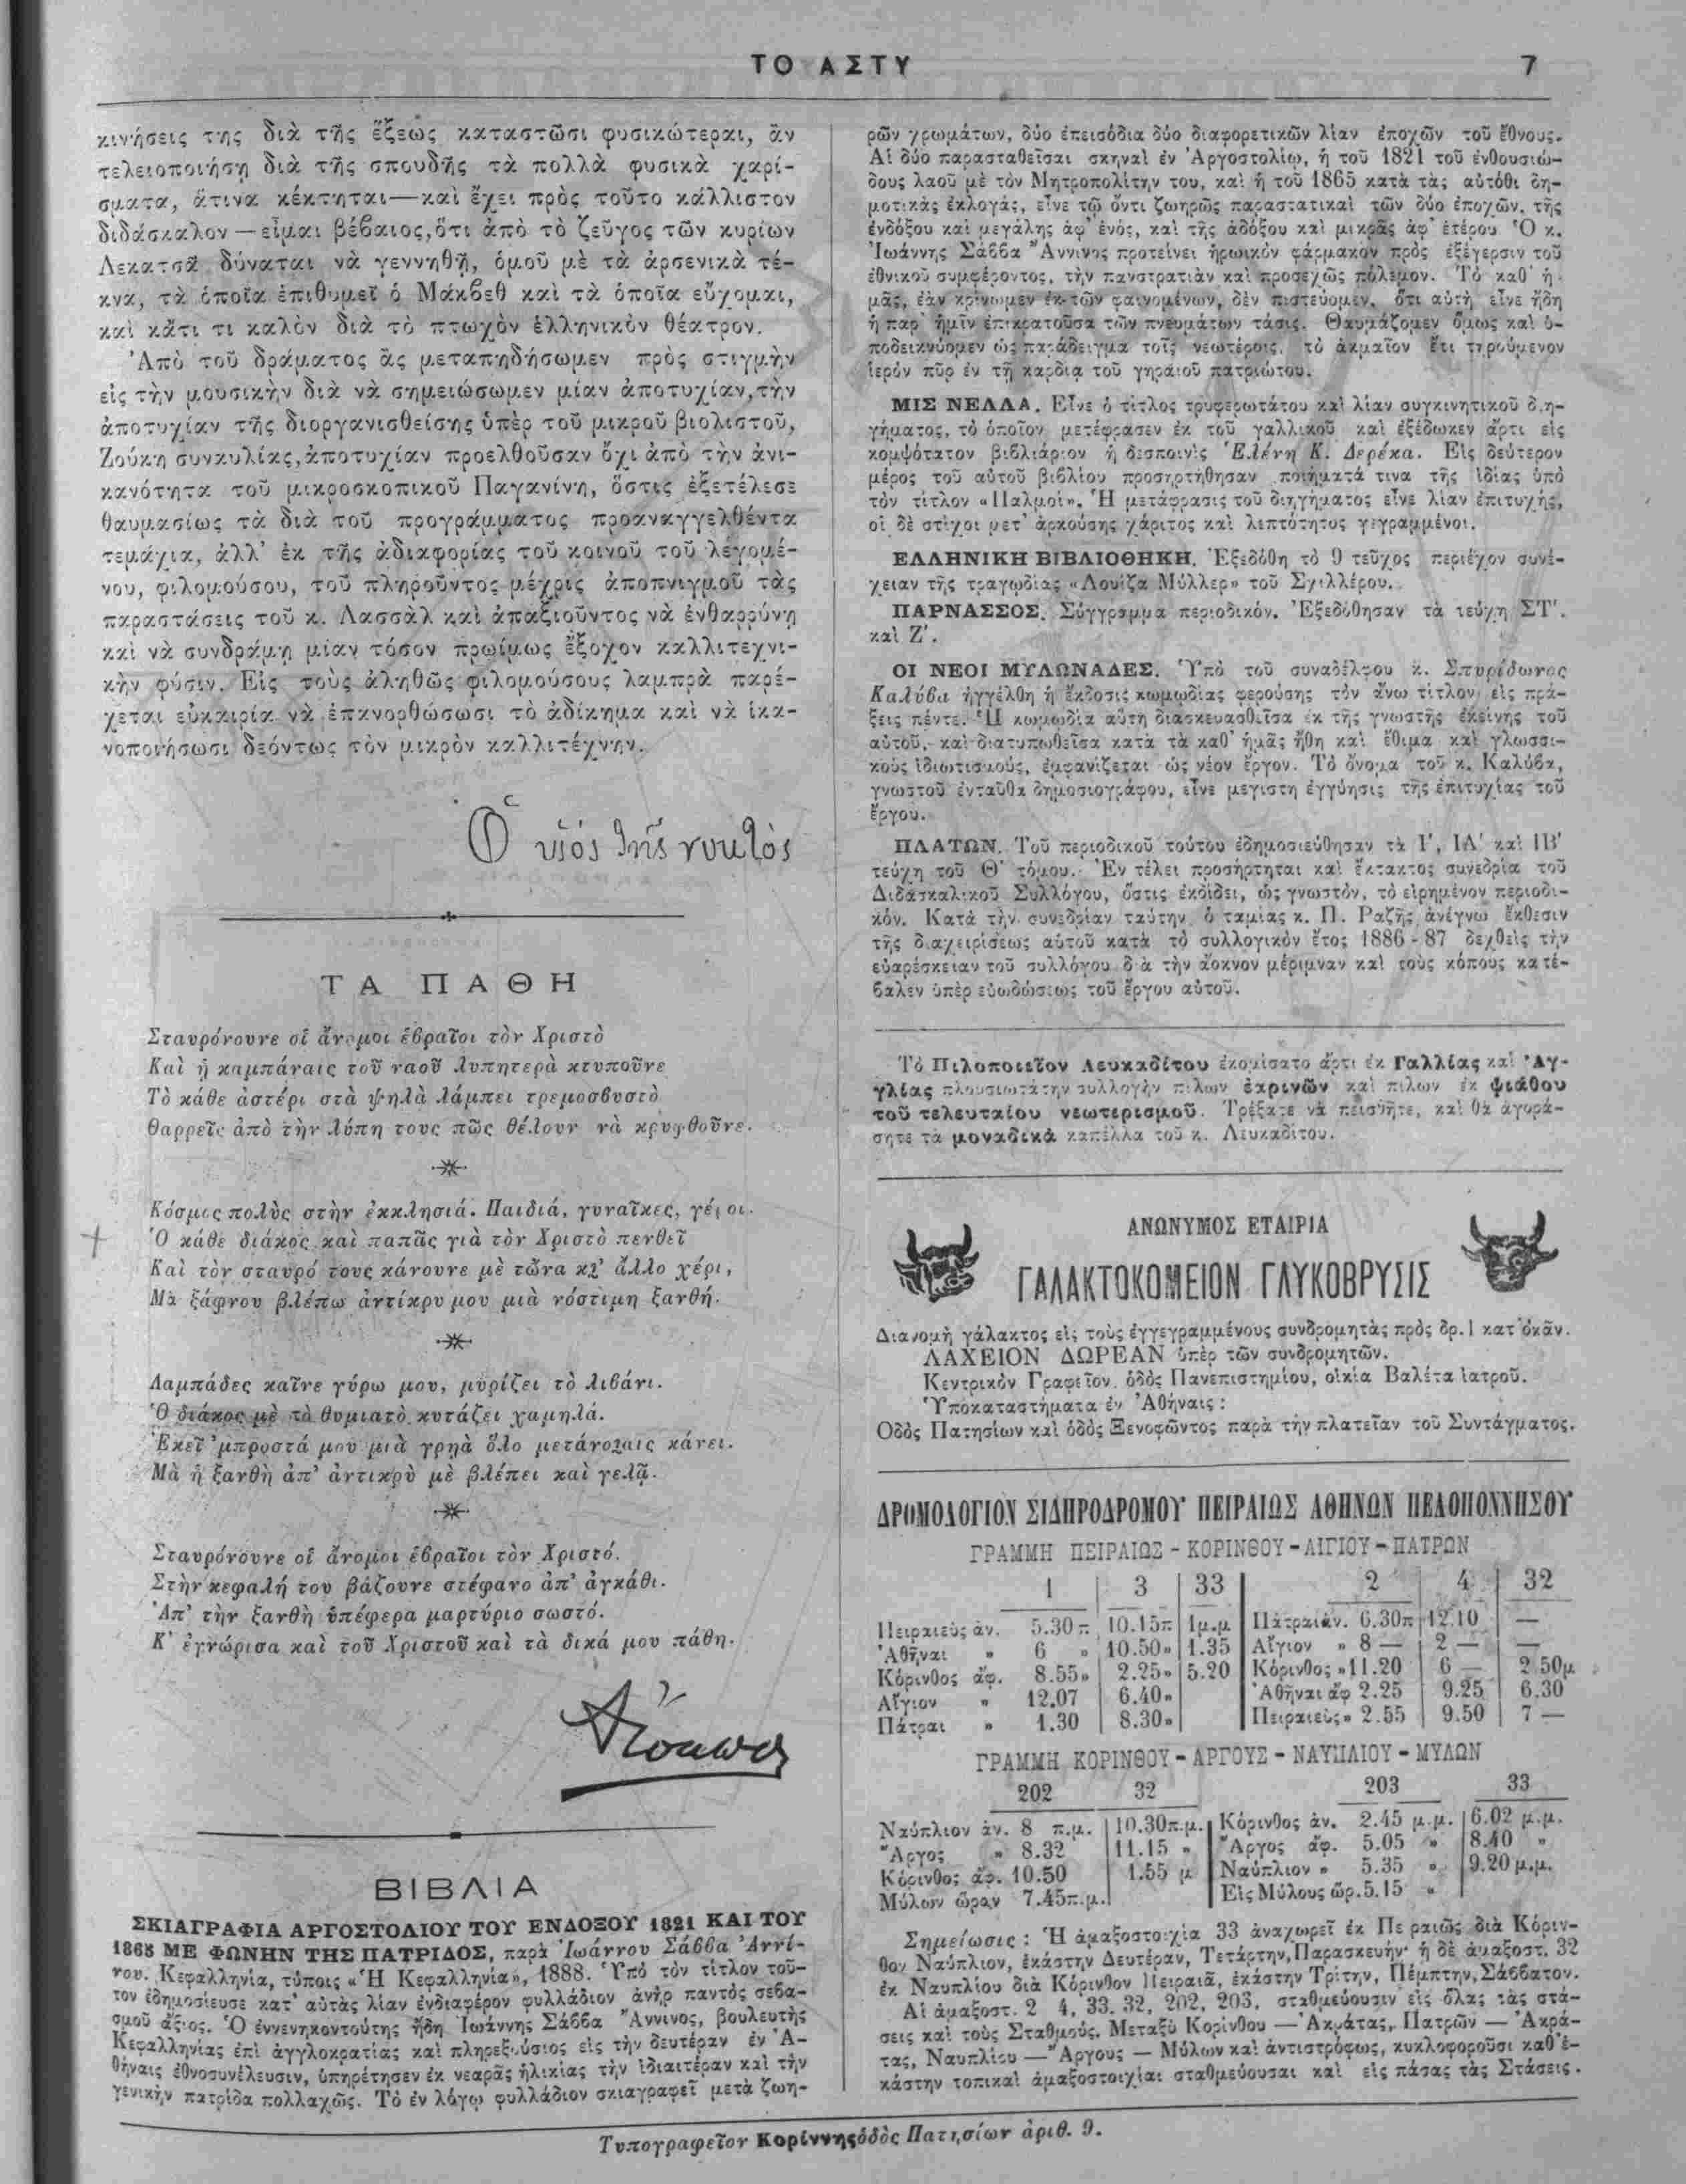 ΤΟ ΑΣΤΥ
7
κινήσεις της διὰ τῆς ἕξεως καταστῶσι φυσικώτεραι, ἂν
τελειοποιήσῃ διὰ τῆς σπουδῆς τὰ πολλὰ φυσικὰ χαρί-
σματα, ἅτινα κέκτηται—καὶ ἔχει πρὸς τοῦτο κάλλιστον
διδάσκαλον—εἶμαι βέβαιος, ὅτι ἀπὸ τὸ ζεῦγος τῶν κυρίων
Λεκατσᾶ δύναται νὰ γεννηθῇ, ὁμοῦ μὲ τὰ ἀρσενικὰ τέ-
κνα, τὰ ὁποῖα ἐπιθυμεῖ ὁ Μάκβεθ καὶ τὰ ὁποῖα εὔχομαι,
καὶ κἄτι τι καλὸν διὰ τὸ πτωχὸν ἑλληνικὸν θέατρον.
Ἀπὸ τοῦ δράματος ἂς μεταπηδήσωμεν πρὸς στιγμὴν
εἰς τὴν μουσικὴν διὰ νὰ σημειώσωμεν μίαν ἀποτυχίαν, τὴν
ἀποτυχίαν τῆς διοργανισθείσης ὑπὲρ τοῦ μικροῦ βιολιστοῦ,
Ζούκη συναυλίας, ἀποτυχίαν προελθοῦσαν ὄχι ἀπὸ τὴν ἀνι-
κανότητα τοῦ μικροσκοπικοῦ Παγανίνη, ὅστις ἐξετέλεσε
θαυμασίως τὰ διὰ τοῦ προγράμματος προαναγγελθέντα
τεμάχια, ἀλλ' ἐκ τῆς ἀδιαφορίας τοῦ κοινοῦ τοῦ λεγομέ-
νου, φιλομούσου, τοῦ πληροῦντος μέχρις ἀποπνιγμοῦ τὰς
παραστάσεις τοῦ κ. Λασσὰλ καὶ ἀπαξιοῦντος νὰ ἐνθαρρύνῃ
καὶ νὰ συνδράμῃ μίαν τόσον πρωίμως ἔξοχον καλλιτεχνι-
κὴν φύσιν. Εἰς τοὺς ἀληθῶς φιλομούσους λαμπρὰ παρέ-
χεται εὐκαιρία νὰ ἐπανορθώσωσι τὸ ἀδίκημα καὶ νὰ ἱκα-
νοποιήσωσι δεόντως τὸν μικρὸν καλλιτέχνην.
Ὁ υἱὸς τῆς νυκτὸς
ΤΑ ΠΑΘΗ
Σταυρόνουνε οἱ ἄνομοι ἑβραῖοι τὸν Χριστὸ
Καὶ ᾑ καμπάναις τοῦ ναοῦ λυπητερὰ κτυποῦνε
Τὸ κάθε ἀστέρι στὰ ψηλὰ λάμπει τρεμοσβυστὸ
Θαρρεῖς ἀπὸ τὴν λύπη τους πῶς θέλουν νὰ κρυφθοῦνε.
Κόσμος πολὺς στὴν ἐκκλησιά. Παιδιά, γυναῖκες, γέροι.
Ὁ κάθε διάκος καὶ παπᾶς γιὰ τὸν Χριστὸ πενθεῖ
Καὶ τὸν σταυρό τους κάνουνε μὲ τὦνα κι' ἄλλο χέρι,
Μὰ ξάφνου βλέπω ἀντίκρυ μου μιὰ νόστιμη ξανθή.
Λαμπάδες καῖνε γύρω μου, μυρίζει τὸ λιβάνι.
Ὁ διάκος μὲ τὸ θυμιατὸ κυτάζει χαμηλά.
Ἐκεῖ 'μπροστά μου μιὰ γρῃὰ ὅλο μετάνοιαις κάνει.
Μὰ ἡ ξανθὴ ἀπ' ἀντικρὺ μὲ βλέπει καὶ γελᾷ.
Σταυρόνουνε οἱ ἄνομοι ἑβραῖοι τὸν Χριστό.
Στὴν κεφαλή του βάζουνε στέφανο ἀπ' ἀγκάθι.
Ἀπ' τὴν ξανθὴ ὑπέφερα μαρτύριο σωστό.
Κ' ἐγνώρισα καὶ τοῦ Χριστοῦ καὶ τὰ δικά μου πάθη.
ΒΙΒΛΙΑ
ΣΚΙΑΓΡΑΦΙΑ ΑΡΓΟΣΤΟΛΙΟΥ ΤΟΥ ΕΝΔΟΞΟΥ 1821 ΚΑΙ ΤΟΥ
1865 ΜΕ ΦΩΝΗΝ ΤΗΣ ΠΑΤΡΙΔΟΣ, παρὰ Ἰωάννου Σάββα Ἀννί-
νου. Κεφαλληνία, τύποις «Ἡ Κεφαλληνία», 1888. Ὑπὸ τὸν τίτλον τοῦ-
τον ἐδημοσίευσε κατ' αὐτὰς λίαν ἐνδιαφέρον φυλλάδιον ἀνὴρ παντὸς σεβα-
σμοῦ ἄξιος. Ὁ ἐννενηκοντούτης ἤδη Ἰωάννης Σάββα Ἄννινος, βουλευτὴς
Κεφαλληνίας ἐπὶ ἀγγλοκρατίας καὶ πληρεξούσιος εἰς τὴν δευτέραν ἐν Ἀ-
θήναις ἐθνοσυνέλευσιν, ὑπηρέτησεν ἐκ νεαρᾶς ἡλικίας τὴν ἰδιαιτέραν καὶ τὴν
γενικὴν πατρίδα πολλαχῶς. Τὸ ἐν λόγῳ φυλλάδιον σκιαγραφεῖ μετὰ ζωη-
ρῶν χρωμάτων, δύο ἐπεισόδια δύο διαφορετικῶν λίαν ἐποχῶν τοῦ ἔθνους.
Αἱ δύο παρασταθεῖσαι σκηναὶ ἐν Ἀργοστολίῳ, ἡ τοῦ 1821 τοῦ ἐνθουσιώ-
δους λαοῦ μὲ τὸν Μητροπολίτην του, καὶ ἡ τοῦ 1865 κατὰ τὰς αὐτόθι δη-
μοτικὰς ἐκλογάς, εἶνε τῷ ὄντι ζωηρῶς παραστατικαὶ τῶν δύο ἐποχῶν, τῆς
ἐνδόξου καὶ μεγάλης ἀφ' ἑνός, καὶ τῆς ἀδόξου καὶ μικρᾶς ἀφ' ἑτέρου Ὁ κ.
Ἰωάννης Σάββα Ἄννινος προτείνει ἡρωικὸν φάρμακον πρὸς ἐξέγερσιν τοῦ
ἐθνικοῦ συμφέροντος, τὴν πανστρατιὰν καὶ προσεχῶς πόλεμον. Τὸ καθ' ἡ-
μᾶς, ἐὰν κρίνωμεν ἐκ τῶν φαινομένων, δὲν πιστεύομεν, ὅτι αὐτὴ εἶνε ἤδη
ἡ παρ' ἡμῖν ἐπικρατοῦσα τῶν πνευμάτων τάσις. Θαυμάζομεν ὅμως καὶ ὑ-
ποδεικνύομεν ὡς παράδειγμα τοῖς νεωτέροις, τὸ ἀκμαῖον ἔτι τηρούμενον
ἱερὸν πῦρ ἐν τῇ καρδίᾳ τοῦ γηραιοῦ πατριώτου.
ΜΙΣ ΝΕΛΛΑ. Εἶνε ὁ τίτλος τρυφερωτάτου καὶ λίαν συγκινητικοῦ διη-
γήματος, τὸ ὁποῖον μετέφρασεν ἐκ τοῦ γαλλικοῦ καὶ ἐξέδωκεν ἄρτι εἰς
κομψότατον βιβλιάριον ἡ δεσποινὶς Ἑλένη Κ. Δερέκα. Εἰς δεύτερον
μέρος τοῦ αὐτοῦ βιβλίου προσηρτήθησαν ποιήματά τινα τῆς ἰδίας ὑπὸ
τὸν τίτλον «Παλμοί». Ἡ μετάφρασις τοῦ διηγήματος εἶνε λίαν ἐπιτυχής,
οἱ δὲ στίχοι μετ' ἀρκούσης χάριτος καὶ λεπτότητος γεγραμμένοι.
ΕΛΛΗΝΙΚΗ ΒΙΒΛΙΟΘΗΚΗ. Ἐξεδόθη τὸ 9 τεῦχος περιέχον συνέ-
χειαν τῆς τραγῳδίας «Λουίζα Μύλλερ» τοῦ Σχιλλέρου.
ΠΑΡΝΑΣΣΟΣ. Σύγγραμμα περιοδικόν. Ἐξεδόθησαν τὰ τεύχη ΣΤ'.
καὶ Ζ'.
ΟΙ ΝΕΟΙ ΜΥΛΩΝΑΔΕΣ. Ὑπὸ τοῦ συναδέλφου κ. Σπυρίδωνος
Καλύβα ἠγγέλθη ἡ ἔκδοσις κωμῳδίας φερούσης τὸν ἄνω τίτλον εἰς πρά-
ξεις πέντε. Ἡ κωμῳδία αὕτη διασκευασθεῖσα ἐκ τῆς γνωστῆς ἐκείνης τοῦ
αὐτοῦ, καὶ διατυπωθεῖσα κατὰ τὰ καθ' ἡμᾶς ἤθη καὶ ἔθιμα καὶ γλωσσι-
κοὺς ἰδιωτισμούς, ἐμφανίζεται ὡς νέον ἔργον. Τὸ ὄνομα τοῦ κ. Καλύβα,
γνωστοῦ ἐνταῦθα δημοσιογράφου, εἶνε μεγίστη ἐγγύησις τῆς ἐπιτυχίας τοῦ
ἔργου.
ΠΛΑΤΩΝ. Τοῦ περιοδικοῦ τούτου ἐδημοσιεύθησαν τὰ Ι', ΙΑ' καὶ ΙΒ'
τεύχη τοῦ Θ' τόμου. Ἐν τέλει προσήρτηται καὶ ἔκτακτος συνεδρία τοῦ
Διδασκαλικοῦ Συλλόγου, ὅστις ἐκδίδει, ὡς γνωστόν, τὸ εἰρημένον περιοδι-
κόν. Κατὰ τὴν συνεδρίαν ταύτην ὁ ταμίας κ. Π. Ραζῆς ἀνέγνω ἔκθεσιν
τῆς διαχειρίσεως αὐτοῦ κατὰ τὸ συλλογικὸν ἔτος 1886-87 δεχθεὶς τὴν
εὐαρέσκειαν τοῦ συλλόγου διὰ τὴν ἄοκνον μέριμναν καὶ τοὺς κόπους κατέ-
βαλεν ὑπὲρ εὐωδώσεως τοῦ ἔργου αὐτοῦ.
Τὸ Πιλοποιεῖον Λευκαδίτου ἐκομίσατο ἄρτι ἐκ Γαλλίας καὶ Ἀγ-
γλίας πλουσιωτάτην συλλογὴν πίλων ἐαρινῶν καὶ πίλων ἐκ ψιάθου
τοῦ τελευταίου νεωτερισμοῦ. Τρέξατε νὰ πεισθῆτε, καὶ θὰ ἀγορά-
σητε τὰ μοναδικὰ καπέλλα τοῦ κ. Λευκαδίτου.
ΑΝΩΝΥΜΟΣ ΕΤΑΙΡΙΑ
ΓΑΛΑΚΤΟΚΟΜΕΙΟΝ ΓΛΥΚΟΒΡΥΣΙΣ
Διανομὴ γάλακτος εἰς τοὺς ἐγγεγραμμένους συνδρομητὰς πρὸς δρ. 1 κατ' ὀκᾶν.
ΛΑΧΕΙΟΝ ΔΩΡΕΑΝ ὑπὲρ τῶν συνδρομητῶν.
Κεντρικὸν Γραφεῖον, ὁδὸς Πανεπιστημίου, οἰκία Βαλέτα ἰατροῦ.
Ὑποκαταστήματα ἐν Ἀθήναις:
Ὁδὸς Πατησίων καὶ ὁδὸς Ξενοφῶντος παρὰ τὴν πλατεῖαν τοῦ Συντάγματος.
ΔΡΟΜΟΛΟΓΙΟΝ ΣΙΔΗΡΟΔΡΟΜΟΥ ΠΕΙΡΑΙΩΣ ΑΘΗΝΩΝ ΠΕΛΟΠΟΝΝΗΣΟΥ
ΓΡΑΜΜΗ ΠΕΙΡΑΙΩΣ - ΚΟΡΙΝΘΟΥ - ΑΙΓΙΟΥ - ΠΑΤΡΩΝ
1 3 33 2 4 32
Πειραιεὺς ἀν. 5.30π 10.15π 1μ.μ Πάτραι ἀν. 6.30π 12.10 —
Ἀθῆναι » 6 » 10.50» 1.35 Αἴγιον » 8 — 2 — —
Κόρινθος ἀφ. 8.55» 2.25» 5.20 Κόρινθος » 11.20 6 — 2.50μ
Αἴγιον » 12.07 6.40» Ἀθῆναι ἀφ 2.25 9.25 6.30
Πάτραι » 1.30 8.30» Πειραιεὺς» 2.55 9.50 7 —
ΓΡΑΜΜΗ ΚΟΡΙΝΘΟΥ - ΑΡΓΟΥΣ - ΝΑΥΠΛΙΟΥ - ΜΥΛΩΝ
202 32 203 33
Ναύπλιον ἀν. 8 π.μ. 10.30π.μ. Κόρινθος ἀν. 2.45 μ.μ. 6.02 μ.μ.
Ἄργος » 8.32 11.15 » Ἄργος ἀφ. 5.05 » 8.40 »
Κόρινθος ἀφ. 10.50 1.55 μ Ναύπλιον » 5.35 » 9.20 μ.μ.
Μύλων ὥραν 7.45π.μ. Εἰς Μύλους ὥρ. 5.15 »
Σημείωσις: Ἡ ἁμαξοστοιχία 33 ἀναχωρεῖ ἐκ Πειραιῶς διὰ Κόριν-
θον Ναύπλιον, ἑκάστην Δευτέραν, Τετάρτην, Παρασκευήν· ἡ δὲ ἁμαξοστ. 32
ἐκ Ναυπλίου διὰ Κόρινθον Πειραιᾶ, ἑκάστην Τρίτην, Πέμπτην, Σάββατον.
Αἱ ἁμαξοστ. 2 4, 33. 32, 202, 203, σταθμεύουσιν εἰς ὅλας τὰς στά-
σεις καὶ τοὺς Σταθμούς. Μεταξὺ Κορίνθου — Ἀκράτας, Πατρῶν — Ἀκρά-
τας, Ναυπλίου — Ἄργους — Μύλων καὶ ἀντιστρόφως, κυκλοφοροῦσι καθ' ἑ-
κάστην τοπικαὶ ἁμαξοστοιχίαι σταθμεύουσαι καὶ εἰς πάσας τὰς Στάσεις.
Τυπογραφεῖον Κορίννης ὁδὸς Πατησίων ἀριθ. 9.